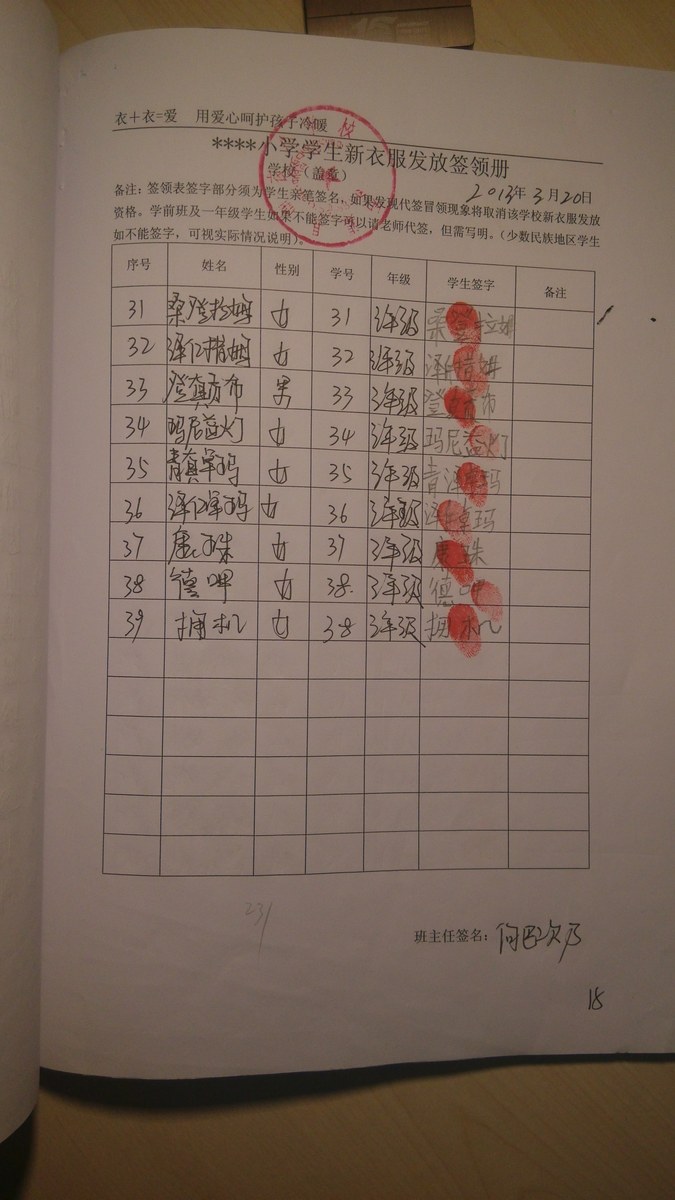 衣+衣=爱 用爱心呵护孩子冷暖
****小学学生新衣服发放签领册
学校（盖章）
2013年3月20日
备注：签领表签字部分须为学生亲笔签名，如果发现代签冒领现象将取消该学校新衣服发放
资格。学前班及一年级学生如果不能签字可以请老师代签，但需写明。（少数民族地区学生
如不能签字，可视实际情况说明）。
序号 姓名 性别 学号 年级 学生签字 备注
31 桑登拉姆 女 31 3年级
32 泽仁拥姆 女 32 3年级
33 登真方布 男 33 3年级 登 布
34 玛尼益灯 女 34 3年级 玛尼益灯
35 青真卓玛 女 35 3年级
36 泽仁泽玛 女 36 3年级
37 康珠 女 37 3年级 康珠
38 德呷 女 38. 3年级 德呷
39 拥机 女 38 3年级 拥机
231
班主任签名：向巴次乃
18